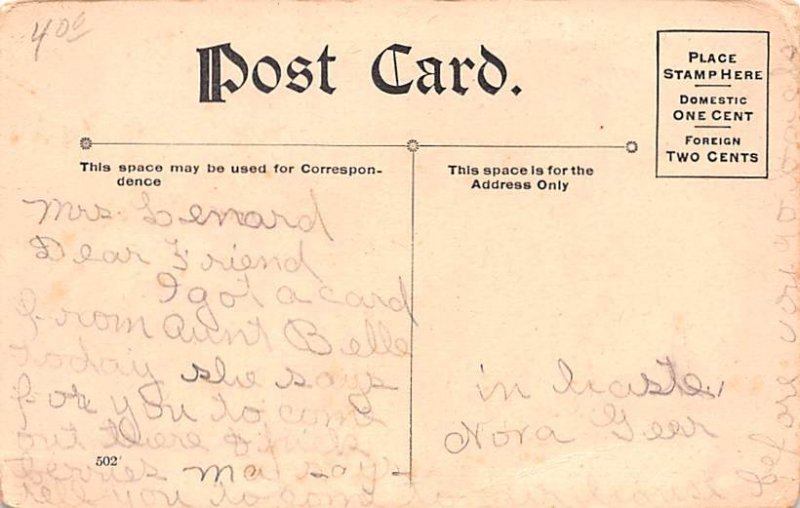 400
Post Card.
PLACE
STAMP HERE
DOMESTIC
ONE CENT
FOREIGN
TWO CENTS
This space may be used for Correspon-
dence
This space is for the
Address Only
Mrs. Lenard
Dear Friend
I got a card
from Aunt Belle
today she says
for you to come
out there &
berries Ma says
tell you to come to our house
before you go
in haste,
Nora Gear
502